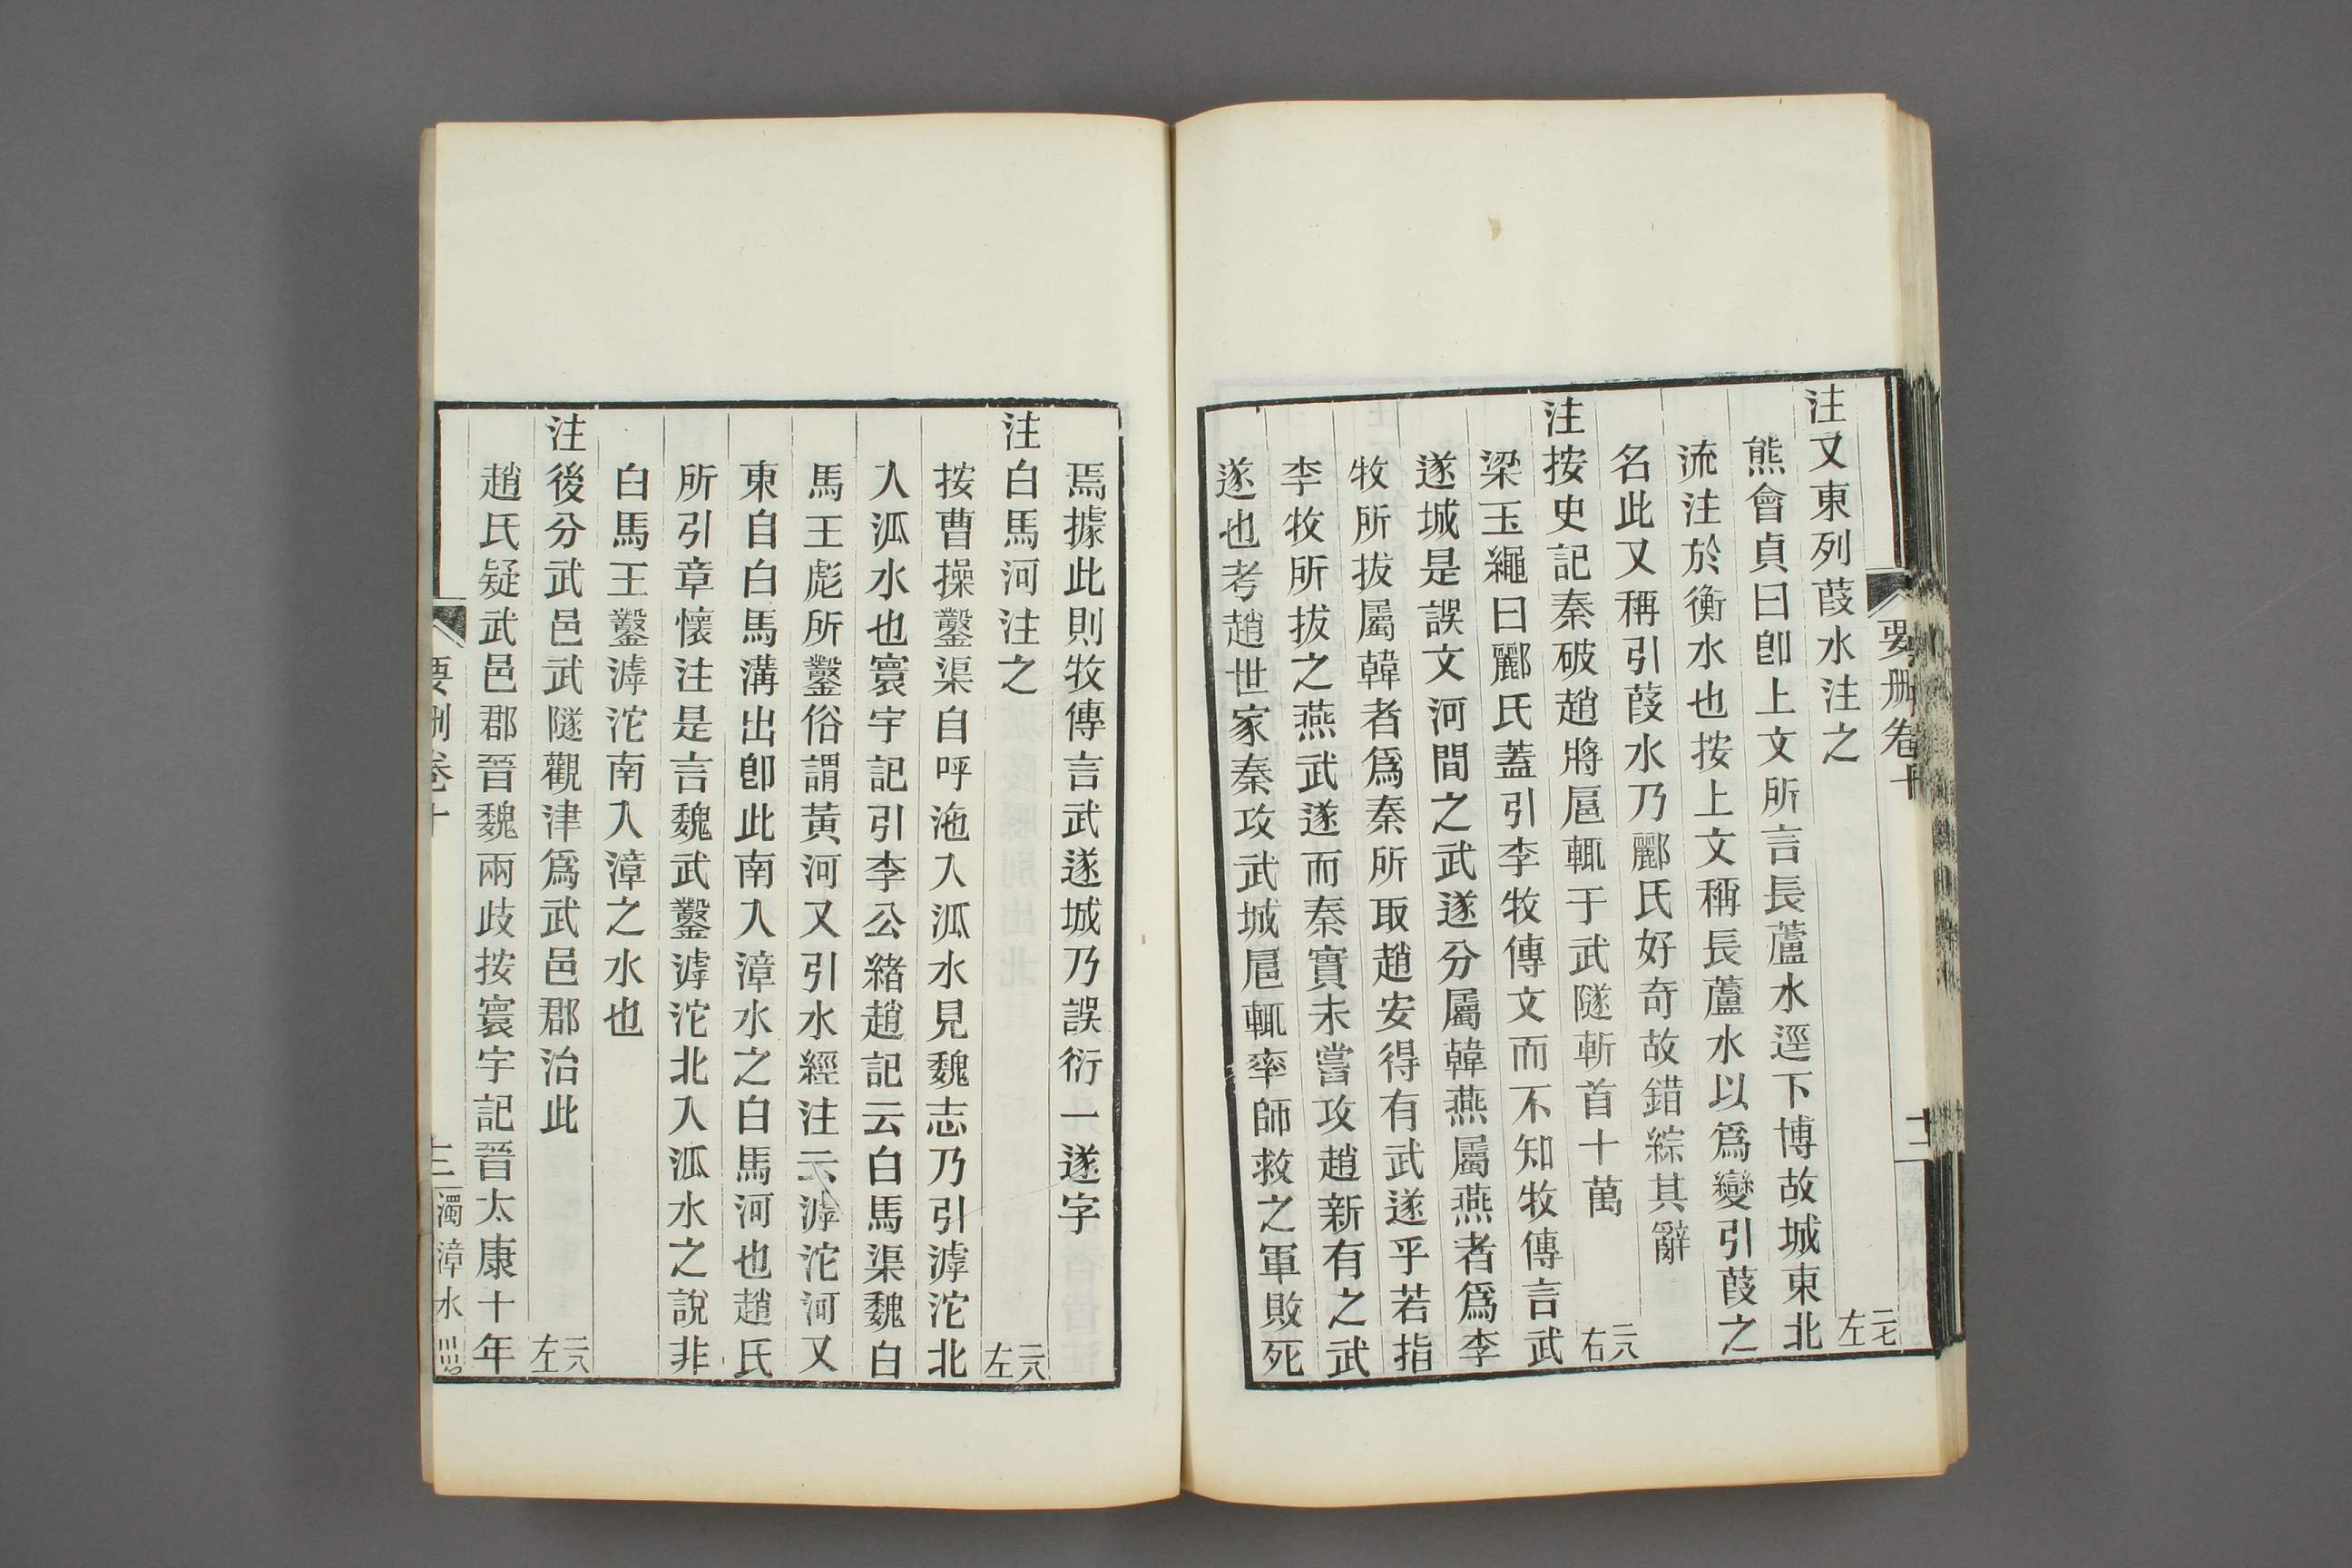 要刪卷十
十二
注又東列葭水注之 二七左
熊會貞曰卽上文所言長蘆水逕下博故城東北
流注於衡水也按上文稱長蘆水以爲變引葭之
名此又稱引葭水乃酈氏好奇故錯綜其辭
注按史記秦破趙將扈輒于武隧斬首十萬 二八右
梁玉繩曰酈氏蓋引李牧傳文而不知牧傳言武
遂城是誤文河間之武遂分屬韓燕屬燕者爲李
牧所拔屬韓者爲秦所取趙安得有武遂乎若指
李牧所拔之燕武遂而秦實未嘗攻趙新有之武
遂也考趙世家秦攻武城扈輒率師救之軍敗死
焉據此則牧傳言武遂城乃誤衍一遂字
注白馬河注之 二八左
按曹操鑿渠自呼沲入泒水見魏志乃引滹沱北
入泒水也寰宇記引李公緒趙記云白馬渠魏白
馬王彪所鑿俗謂黃河又引水經注云滹沱河又
東自白馬溝出卽此南入漳水之白馬河也趙氏
所引章懷注是言魏武鑿滹沱北入泒水之說非
白馬王鑿滹沱南入漳之水也
注後分武邑武隧觀津爲武邑郡治此 二八左
趙氏疑武邑郡晉魏兩歧按寰宇記晉太康十年
要刪卷十
濁漳水